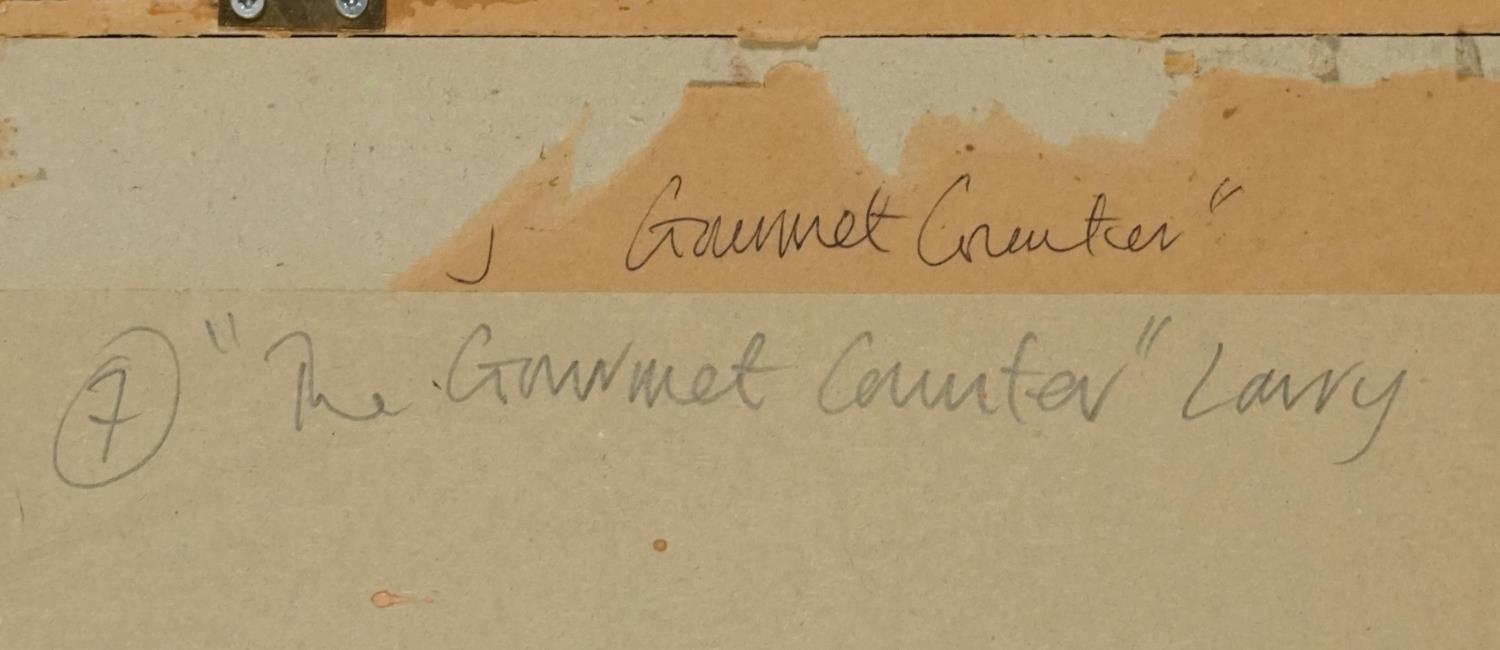 Gourmet Counter"
7 "The Gourmet Counter" Larry